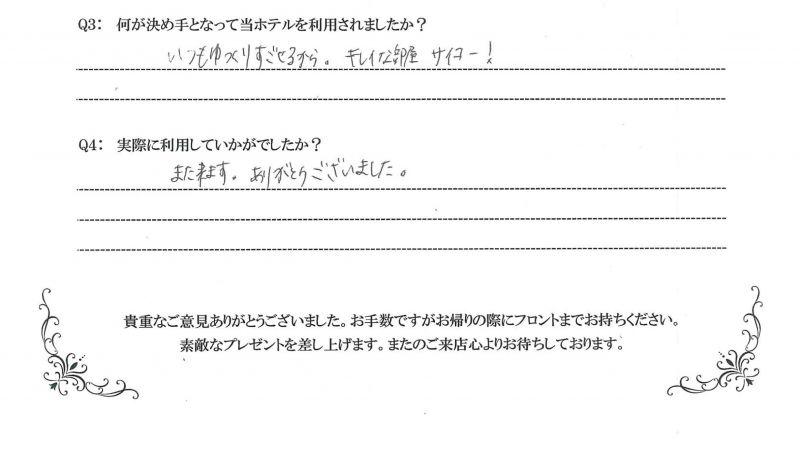 Q3: 何が決め手となって当ホテルを利用されましたか？
いつもゆっくりすごせるから。キレイな部屋 サイコー！
Q4: 実際に利用していかがでしたか？
また来ます。ありがとうございました。
貴重なご意見ありがとうございました。お手数ですがお帰りの際にフロントまでお持ちください。
素敵なプレゼントを差し上げます。またのご来店心よりお待ちしております。